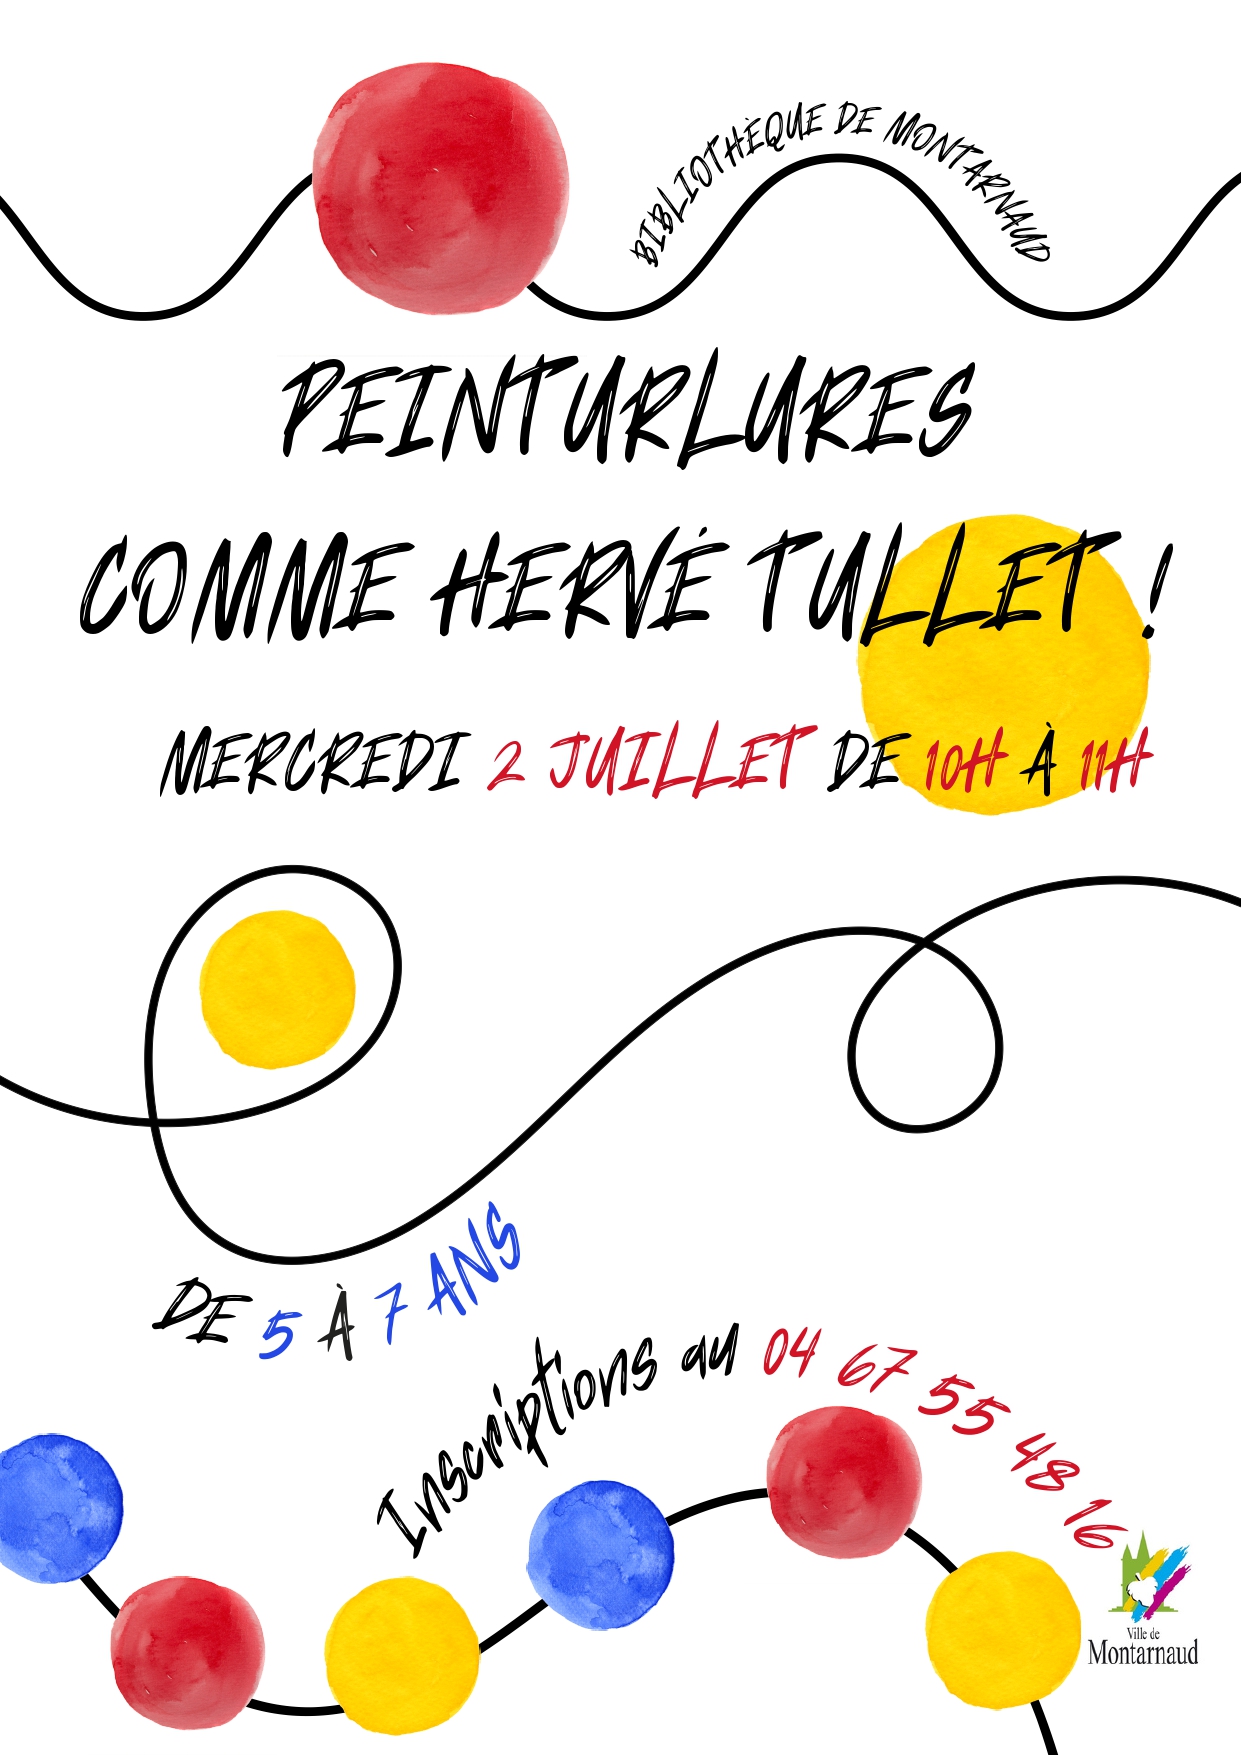 BIBLIOTHÈQUE DE MONTARNAUD
PEINTURLURES
COMME HERVÉ TULLET !
MERCREDI 2 JUILLET DE 10H À 11H
DE 5 À 7 ANS
Inscriptions au 04 67 55 48 16
Ville de
Montarnaud